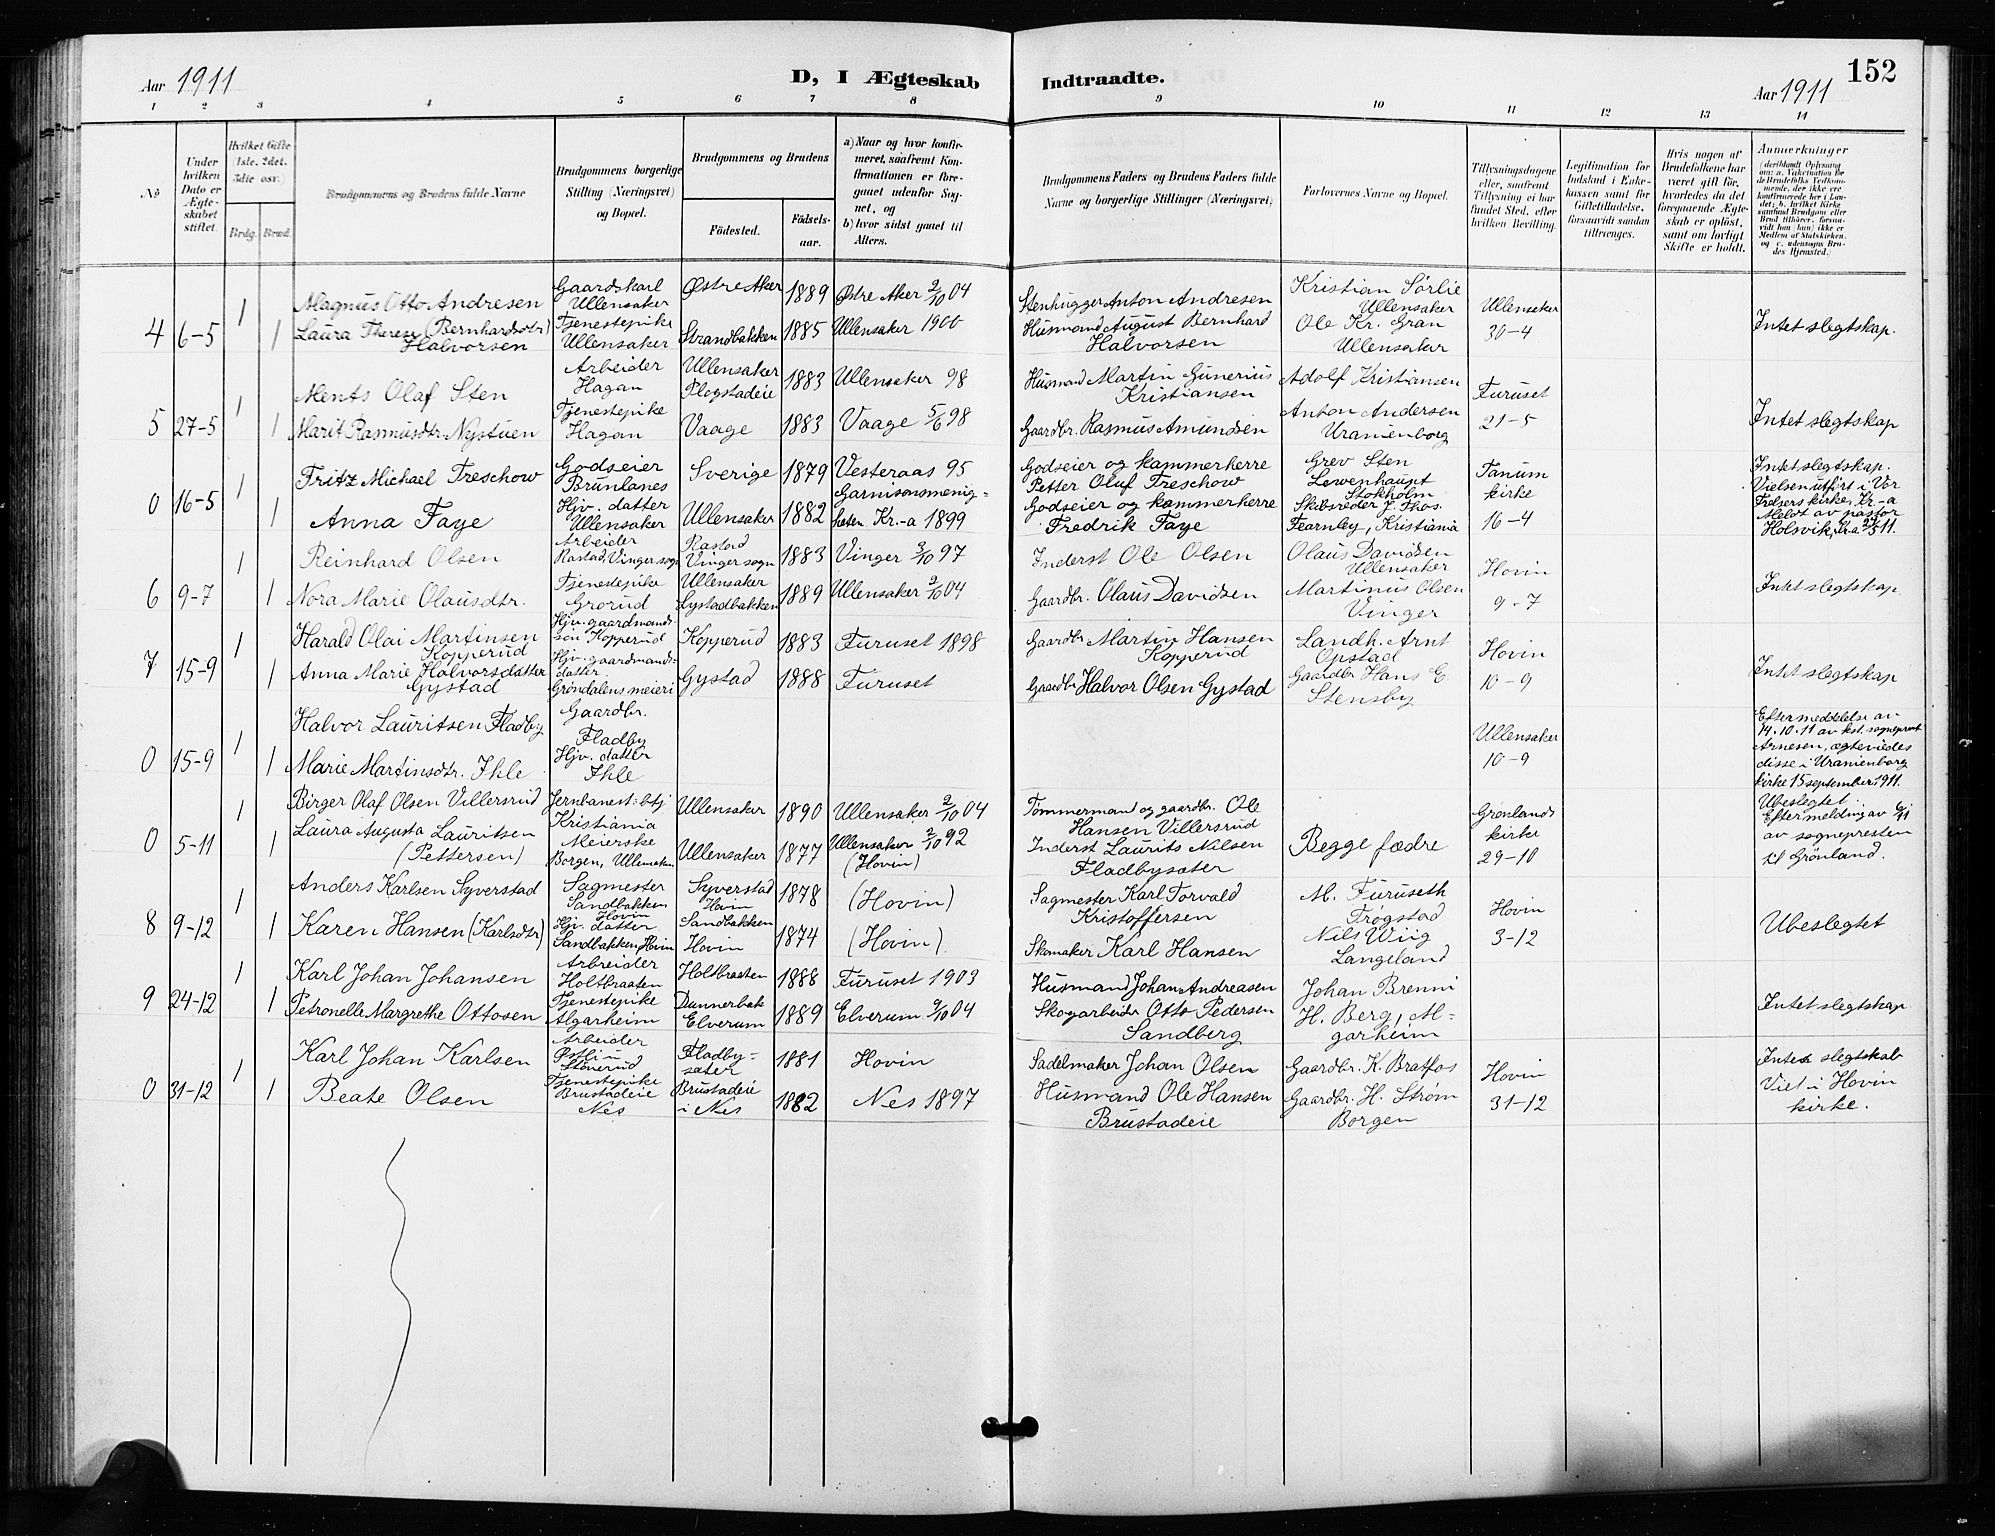 Aar 1911
D, I Ægteskab
Indtraadte.
152
Aar 1911
1 2 3 4 5 6 7 8
9 10 11 12 13 14
No
Under hvilken Dato er Ægteskabet stiftet.
Hvilket Gifte (1ste. 2det. 3die osv.)
Brdg. Brud.
Brudgommens og Brudens fulde Navne
Brudgommens borgerlige Stilling (Næringsvei) og Bopæl.
Brudgommens og Brudens
Fødested.
Fødsels-aar.
a) Naar og hvor konfirmeret, saafremt Konfirmationen er foregaaet udenfor Sognet, og
b) hvor sidst gaaet til Alters.
Brudgommens Faders og Brudens Faders fulde Navne og borgerlige Stillinger (Næringsvei)
Forlovernes Navne og Bopæl.
Tillysningsdagene eller, saafremt Tillysning ei har fundet Sted, efter hvilken Bevilling.
Legitimation for Indskud i Enkekassen samt for Giftetilladelse, forsaavidt saadan tiltrænges.
Hvis nogen af Brudefolkene har været gift før, hvorledes da det foregaaende Ægteskab er opløst, samt om lovligt Skifte er holdt.
Anmerkninger
(deriblandt Oplysning om: a. Vakcination for de Brudefolks Vedkommende, der ikke ere konfirmerede her i Landet; b. hvilket Kirkesamfund Brudgom eller Brud tilhører, forsaavidt han (hun) ikke er Medlem af Statskirken, og c. udensogns Brudes Hjemsted.)
4 6-5 1 Magnus Otto Andresen Gaardskarl Ullensaker Østre Aker 1889 Østre Aker 2/10 04 Stenhugger Anton Andresen Kristian Sørlie Ullensaker Ullensaker 30-4
1 Laura Therese (Bernhardsdtr) Halvorsen Tjenestepike Ullensaker Strandbakken 1885 Ullensaker 1900 Husmand August Bernhard Halvorsen Ole Kr. Gran Ullensaker Intet slegtskap.
5 27-5 1 Ments Olaf Sten Arbeider Hagan Ullensaker Plogstadeie 1883 Ullensaker 98 Husmand Martin Gunerius Kristiansen Adolf Kristiansen Furuset 21-5
1 Marit Rasmusdtr. Nystuen Tjenestepike Hagan Vaage 1883 Vaage 5/6 98 Gaardbr. Rasmus Amundsen Anton Andersen Uranienborg Intet slegtskap
0 16-5 1 Fritz Michael Treschow Godseier Brunlanes Sverige 1879 Vesteraas 95 Godseier og kammerherre Petter Oluf Treschow Grev Sten Lewenhaupt Stokholm Tanum kirke 16-4
1 Anna Faye Hjv. datter Ullensaker Ullensaker 1882 Garnisonsmenigheten Kr.-a 1899 Godseier og kammerherre Fredrik Faye Skibsreder J. Thos. Fearnley, Kristiania Intet slegtskap. Vielsen utført i Vor Frelsers kirke, Kr-a Meldt av pastor Holsvik, Kr.a 27/5 11.
6 9-7 1 Reinhard Olsen Arbeider Rastad, Vinger sogn Rastad Vinger sogn 1883 Vinger 3/10 97 Inderst Ole Olsen Olaus Davidsen Ullensaker Hovin 9-7
1 Nora Marie Olausdtr. Tjenestepike Grorud Ullensaker Lystadbakken 1889 Ullensaker 2/10 04 Gaardbr. Olaus Davidsen Martinus Olsen Vinger Intet slegtskap
7 15-9 1 Harald Olai Martinsen Kopperud Hjv. gaardmands-søn Kopperud Kopperud 1883 Furuset 1898 Gaardbr Martin Hansen Kopperud Landh. Arnt Opstad Hovin 10-9
1 Anna Marie Halvorsdatter Gystad Hjv. gaardmands-datter Grøndalens meieri Gystad 1888 Furuset Gaardbr Halvor Olsen Gystad Gaardbr Hans E. Stensby Intet slegtskap
0 15-9 1 Halvor Lauritsen Fladby Gaardbr. Fladby Ullensaker 10-9
1 Marie Martinsdtr. Ihle Hjv. datter Ihle Efter meddelelse av 14.10.11 av kst. sogneprest Arnesen, ægteviedes disse i Uranienborg kirke 15 september 1911.
0 5-11 1 Birger Olaf Olsen Villersrud Jernbanest: btj Kristiania Ullensaker 1890 Ullensaker 2/10 04 Tømmermand og gaardbr. Ole Hansen Villersrud Grønlands kirke 29-10
1 Laura Augusta Lauritsen (Pettersen) Meierske Borgen, Ullensaker Ullensaker 1877 Ullensaker 2/10 92 (Hovin) Inderst Laurits Nilsen Fladbysæter Begge fædre Ubeslegtet. Efter melding av 6/11 av sognepresten til Grönland.
8 9-12 1 Anders Karlsen Syverstad Sagmester Sandbakken Hovin Syverstad Hovin 1878 (Hovin) Sagmester Karl Torvald Kristoffersen M. Furuseth Trøgstad Hovin 3-12
1 Karen Hansen (Karlsdtr) Hjv. datter Sandbakken, Hovin Sandbakken Hovin 1874 (Hovin) Skomaker Karl Hansen Nils Wiig Langeland Ubeslegtet
9 24-12 1 Karl Johan Johansen Arbeider Holtbraaten Holtbraaten 1888 Furuset 1903 Husmand Johan Andreasen Johan Brenni
1 Petronelle Margrethe Ottosen Tjenestepike Algarheim Dannerbak Elverum 1889 Elverum 9/10 04 Skogarbeider Otto Pedersen Sandberg H. Berg, Algarheim Intet slegtskap
0 31-12 1 Karl Johan Karlsen Arbeider Østli u Støverud Fladby-sæter 1881 Hovin Sadelmaker Johan Olsen Gaardbr. K. Bratfos Hovin 31-12
1 Beate Olsen Tjenestepike Brustadeie Nes Brustadeie i Nes 1882 Nes 1897 Husmand Ole Hansen Brustadeie Gaardbr. H. Strøm Borgen Intet slegtskab Viet i Hovin kirke.